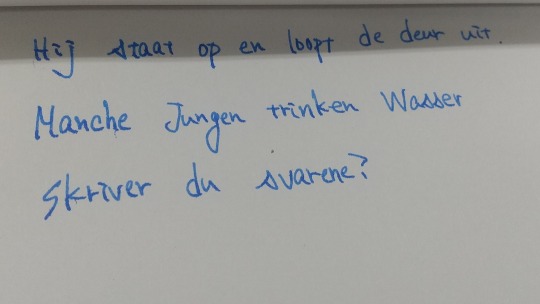 Hij staat op en loopt de deur uit.
Manche Jungen trinken Wasser
Skriver du svarene?